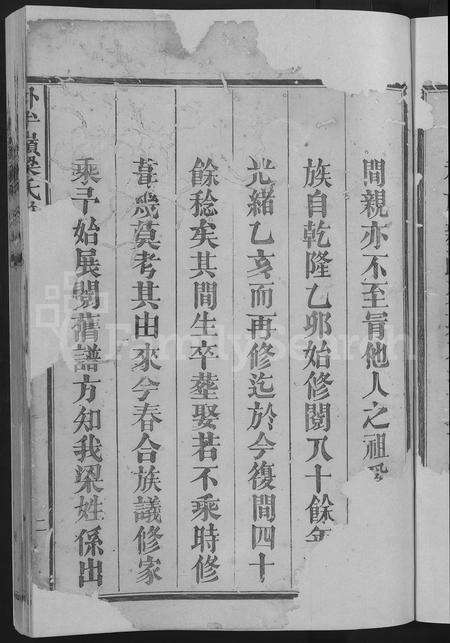 間親亦不至冒他人之祖
族自乾隆乙卯始修閱八十餘年
光緒乙亥而再修迄於今復間四十
餘稔矣其間生卒塟娶若不乘時修
葺幾莫考其由來今春合族議修家
乘予始展閱舊譜方知我梁姓係出
嶺梁氏
二
FamilySearch